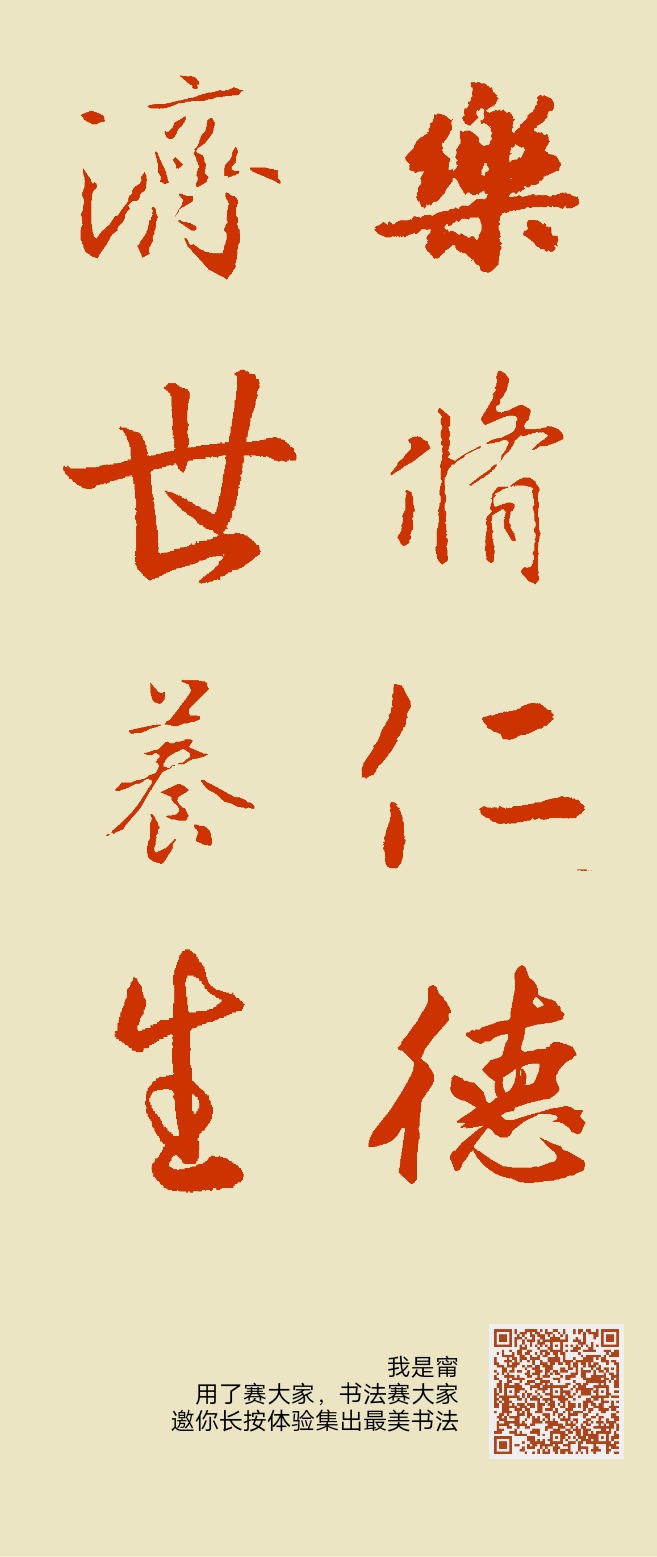 樂脩仁德
濟世養生
我是甯
用了赛大家，书法赛大家
邀你长按体验集出最美书法